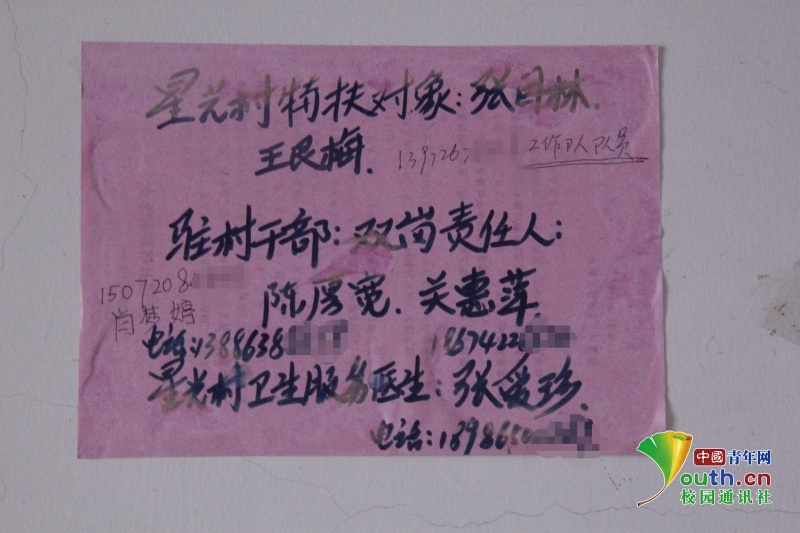 星光村特扶对象：张同林.
王艮梅. 139726 工作队队员
驻村干部：双岗责任人：
1507208
肖梦婷
陈厚宽. 关惠萍.
电话：1388638 1867422
星光村卫生服务医生：张爱珍.
电话：1898650
中國青年网
Youth.cn
校园通讯社